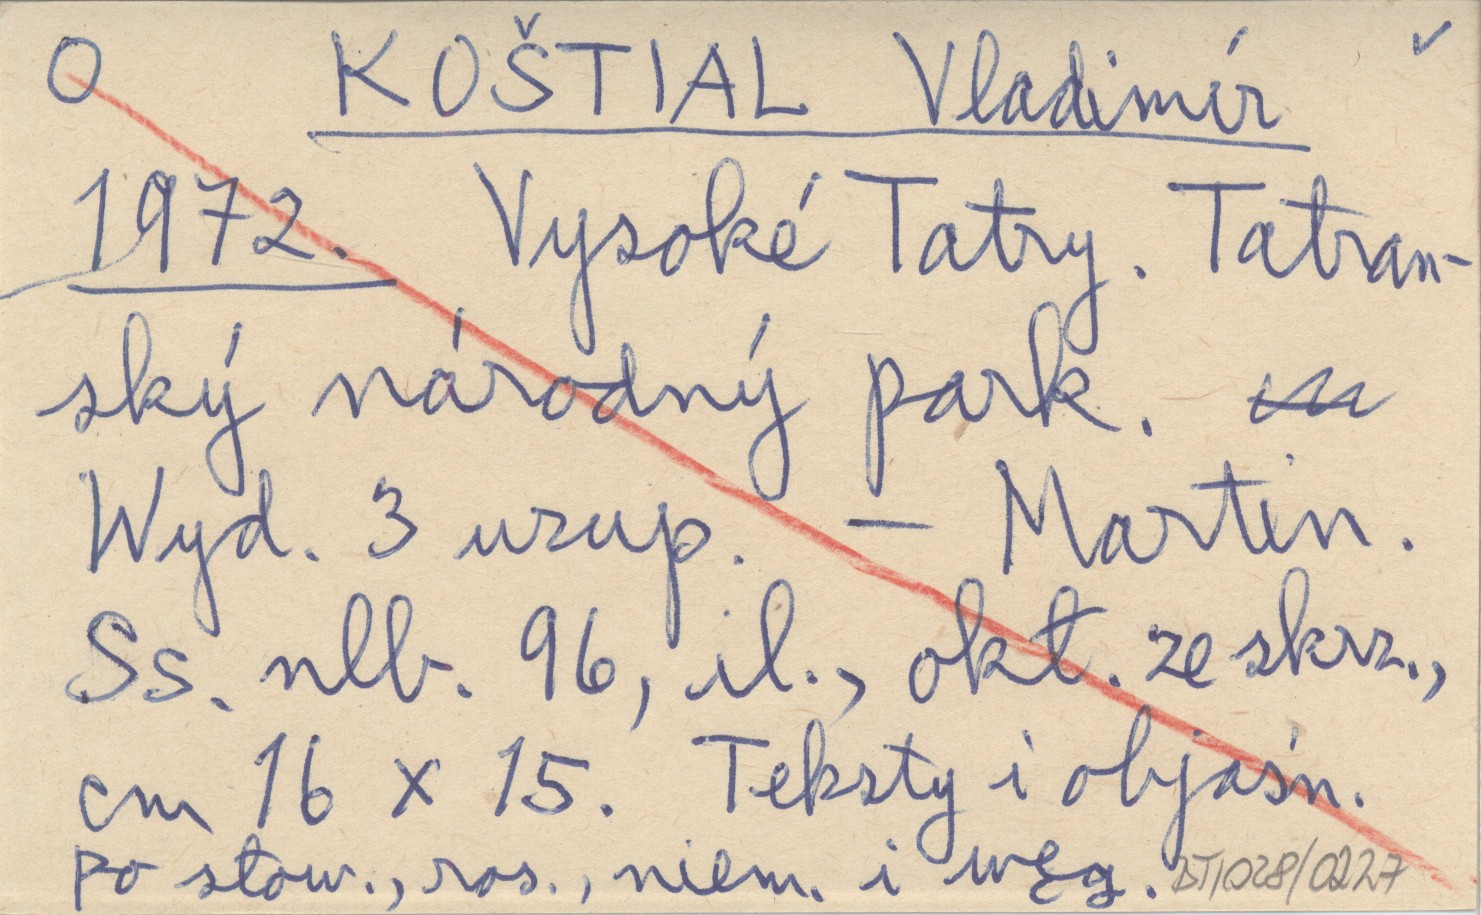 O KOŠTIAL Vladimír ✓
1972. Vysoké Tatry. Tatran-
ský národný park.
Wyd. 3 uzup. — Martin.
Ss. nlb. 96, il., okł. ze skrz.,
cm 16 x 15. Teksty i objaśn.
po słow., ros., niem. i węg. DT/028/0227